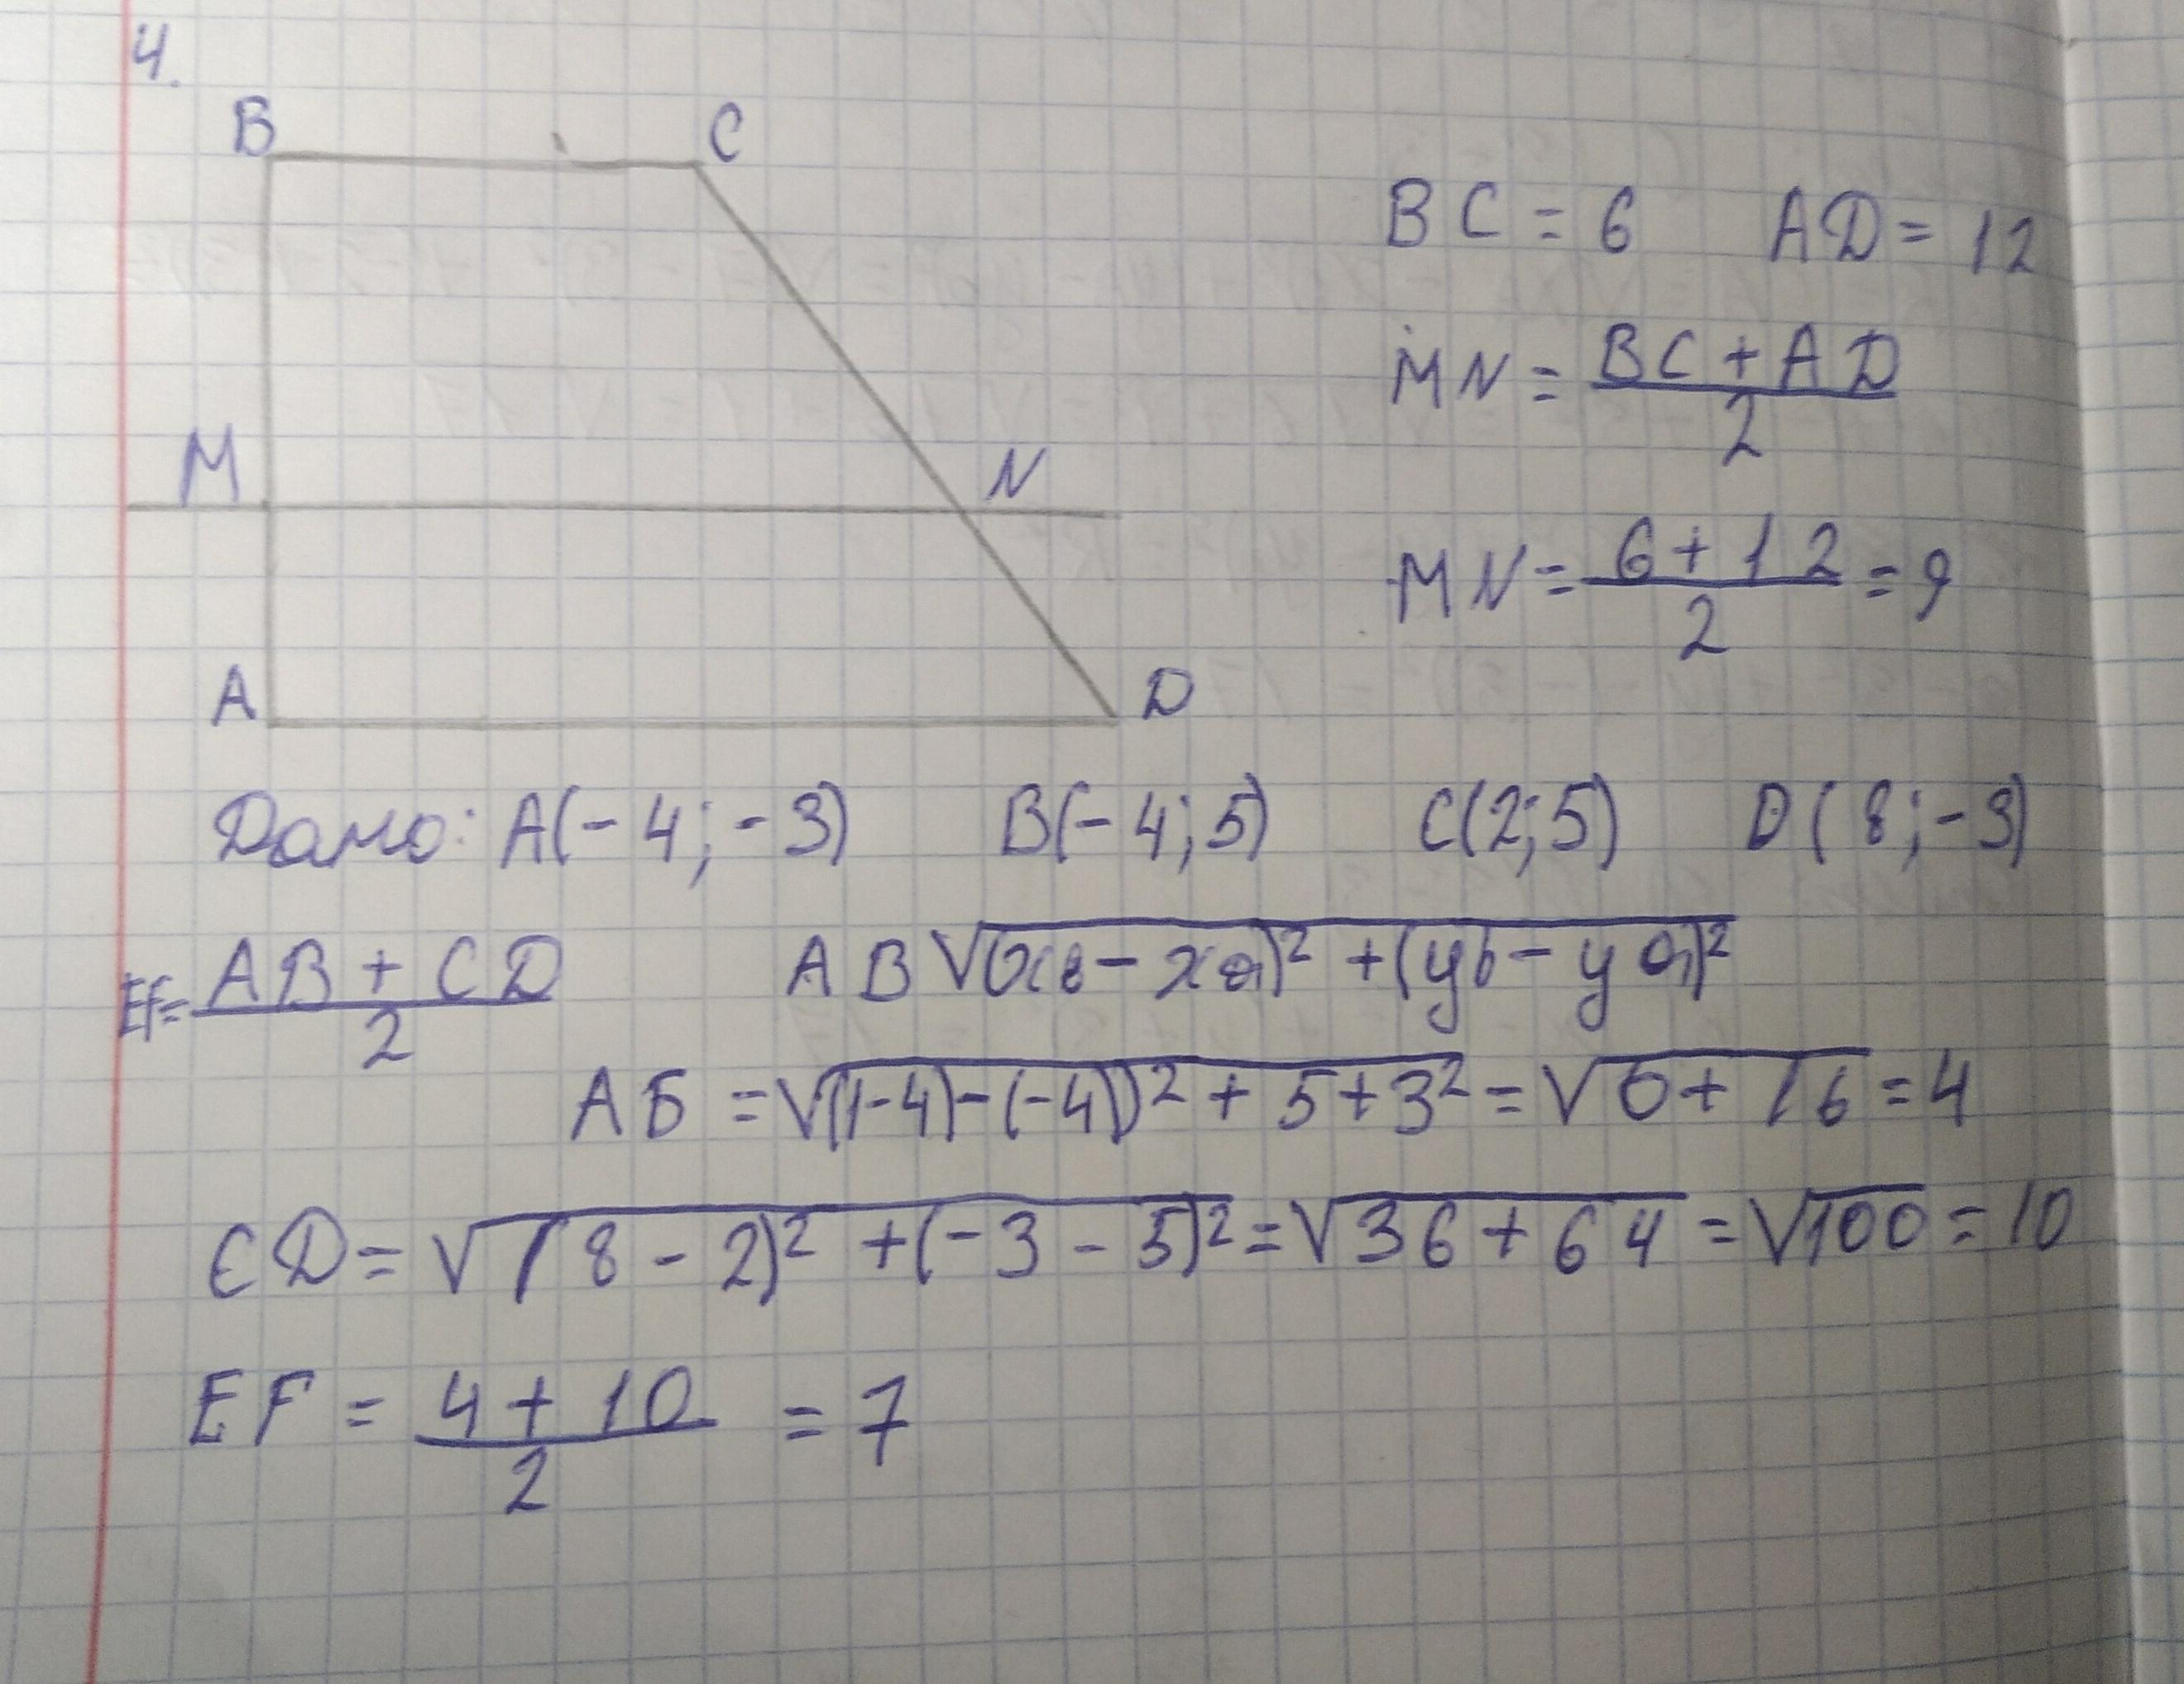 4.
B C
BC = 6 AD = 12
MN = (BC + AD)/2
M N
MN = (6 + 12)/2 = 9
A D
Дано: A(-4; -3) B(-4; 5) C(2; 5) D(8; -3)
EF = (AB + CD)/2 AB √(xв - xа)² + (yb - yа)²
АБ = √((-4) - (-4))² + 5 + 3² = √0 + 16 = 4
CD = √(8 - 2)² + (-3 - 5)² = √36 + 64 = √100 = 10
EF = (4 + 10)/2 = 7